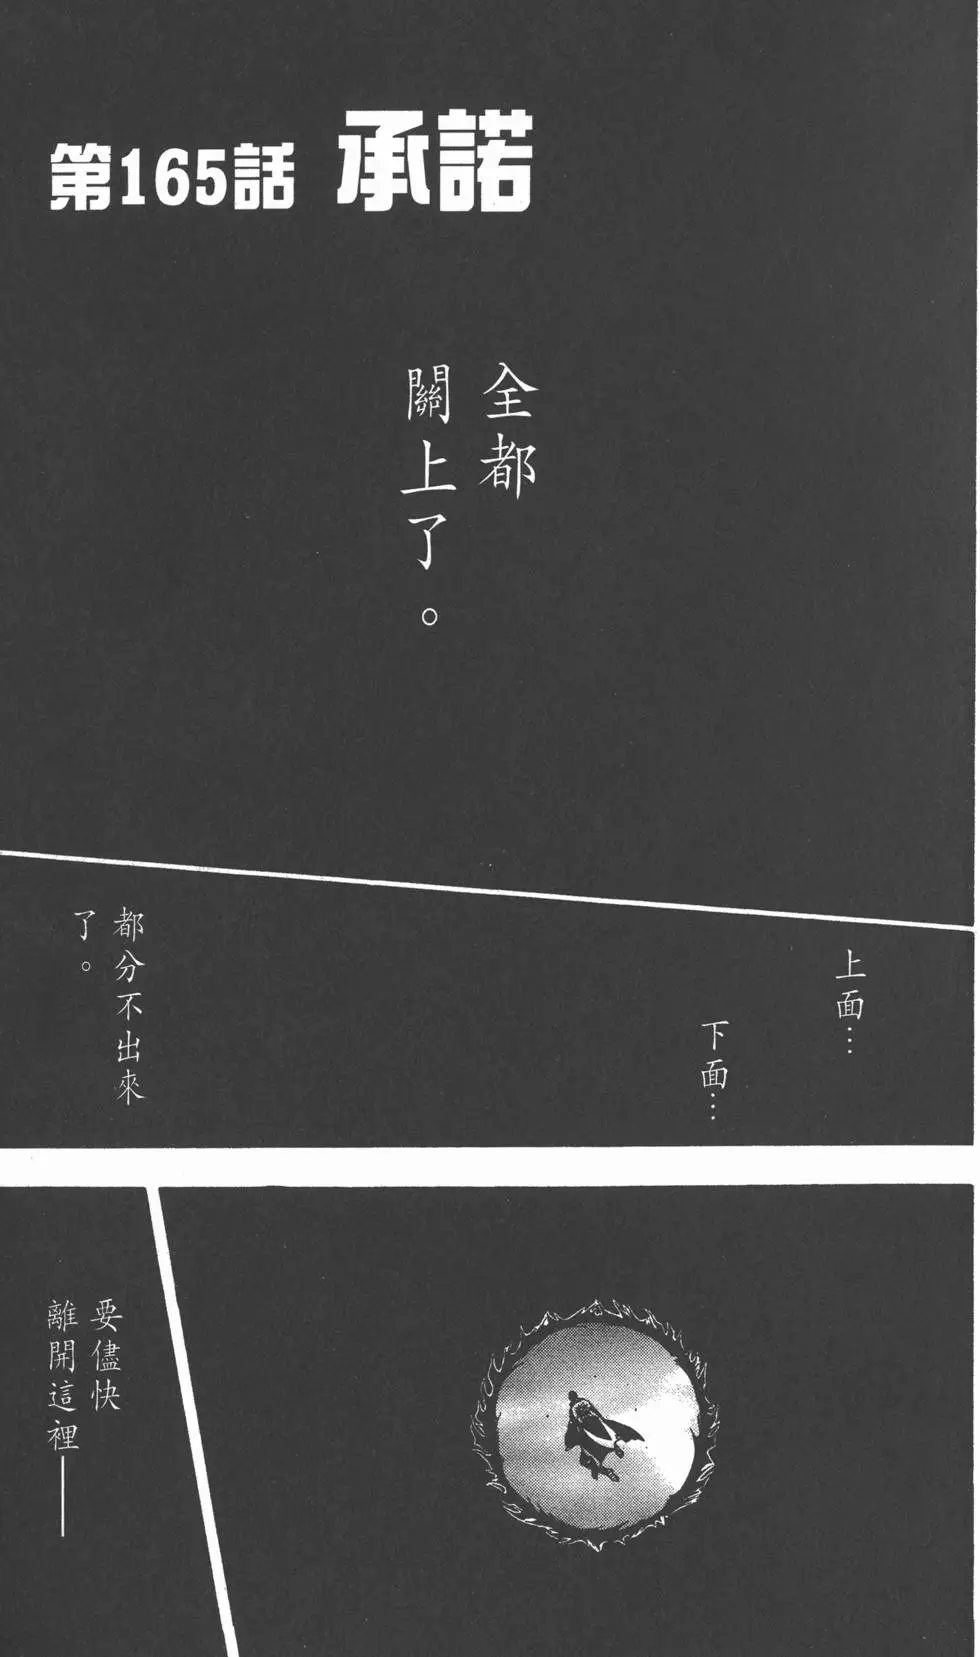 第165話 承諾
全都
關上了。
上面…
下面…
都分不出來
了。
要儘快
離開這裡——